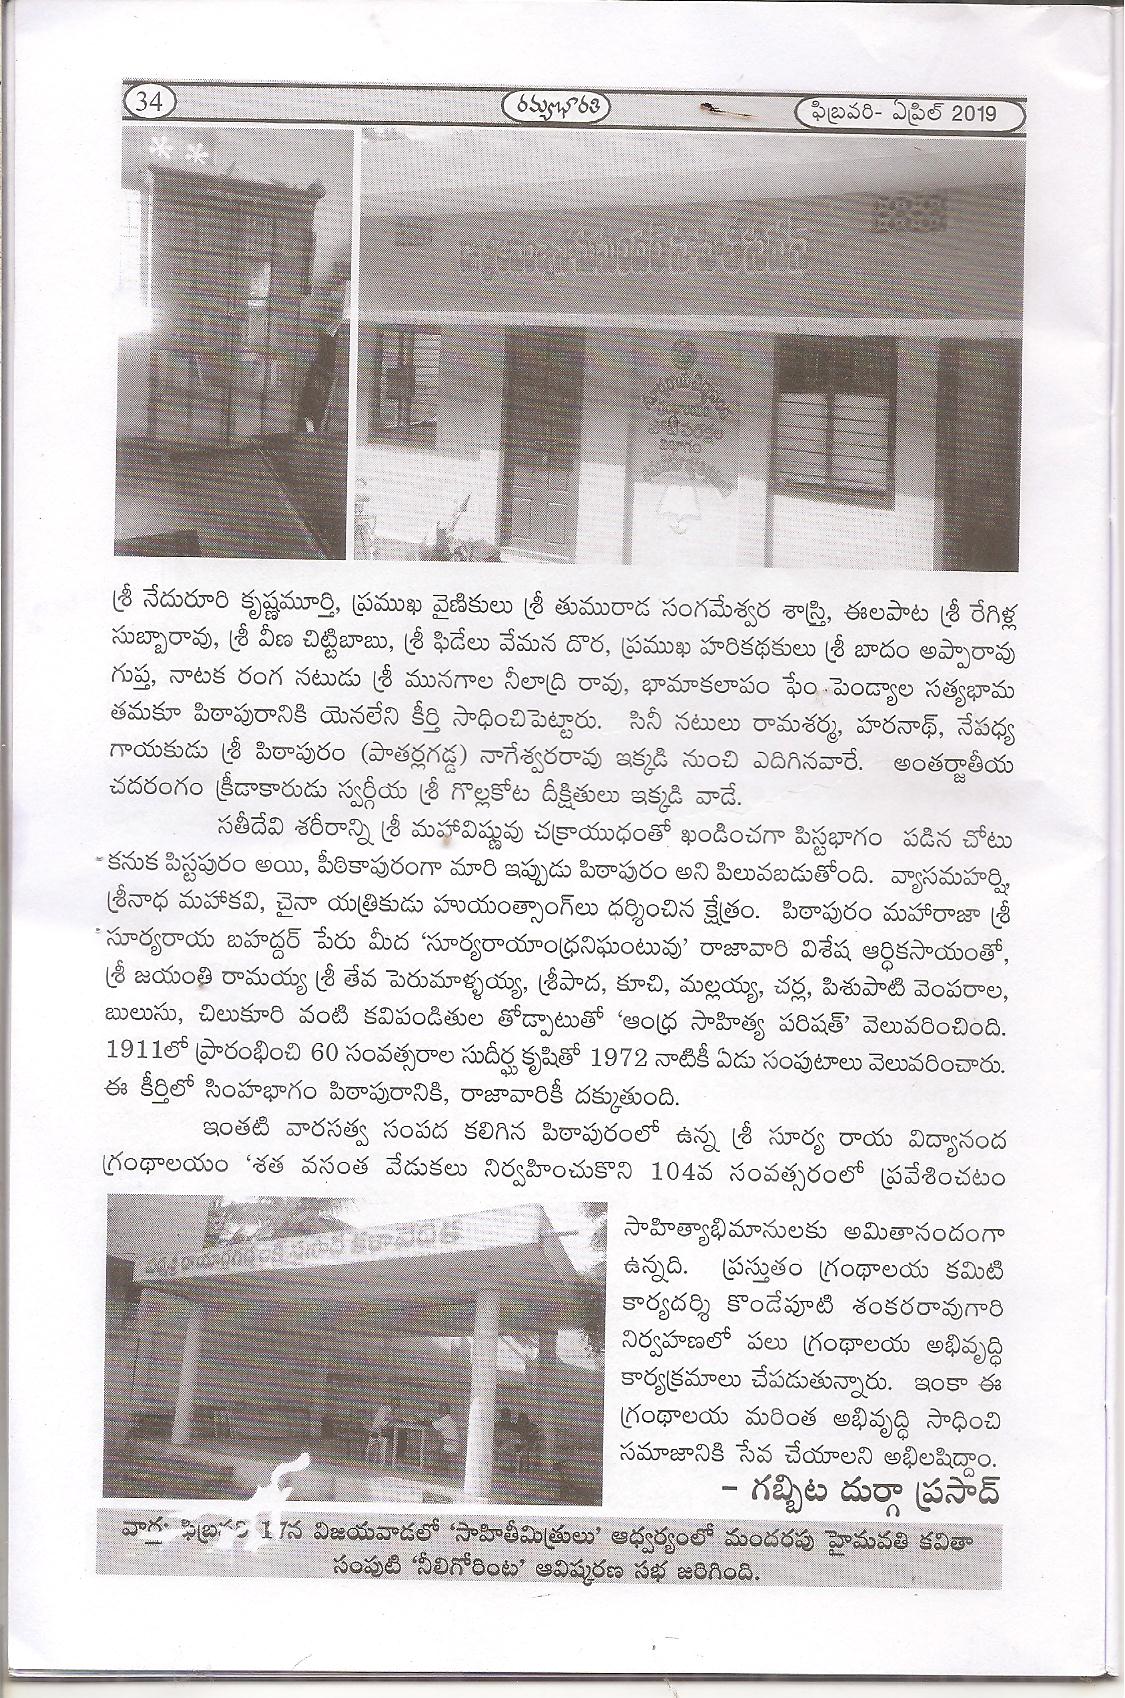 34
రమ్యభారతి
ఫిబ్రవరి- ఏప్రిల్ 2019
శ్రీ నేదురూరి కృష్ణమూర్తి, ప్రముఖ వైణికులు శ్రీ తుమురాడ సంగమేశ్వర శాస్త్రి, ఈలపాట శ్రీ రేగిళ్ల
సుబ్బారావు, శ్రీ వీణ చిట్టిబాబు, శ్రీ ఫిడేలు వేమన దొర, ప్రముఖ హరికథకులు శ్రీ బాదం అప్పారావు
గుప్త, నాటక రంగ నటుడు శ్రీ మునగాల నీలాద్రి రావు, భామాకలాపం ఫేం పెండ్యాల సత్యభామ
తమకూ పిఠాపురానికి యెనలేని కీర్తి సాధించిపెట్టారు. సినీ నటులు రామశర్మ, హరనాథ్, నేపధ్య
గాయకుడు శ్రీ పిఠాపురం (పాతర్లగడ్డ) నాగేశ్వరరావు ఇక్కడి నుంచి ఎదిగినవారే. అంతర్జాతీయ
చదరంగం క్రీడాకారుడు స్వర్గీయ శ్రీ గొల్లకోట దీక్షితులు ఇక్కడి వాడే.
సతీదేవి శరీరాన్ని శ్రీ మహావిష్ణువు చక్రాయుధంతో ఖండించగా పిస్టభాగం పడిన చోటు
కనుక పిస్టపురం అయి, పీఠికాపురంగా మారి ఇప్పుడు పిఠాపురం అని పిలువబడుతోంది. వ్యాసమహర్షి,
శ్రీనాధ మహాకవి, చైనా యత్రికుడు హుయంత్సాంగ్‌లు ధర్శించిన క్షేత్రం. పిఠాపురం మహారాజా శ్రీ
సూర్యరాయ బహద్దర్ పేరు మీద ‘సూర్యరాయాంధ్రనిఘంటువు’ రాజావారి విశేష ఆర్ధికసాయంతో,
శ్రీ జయంతి రామయ్య శ్రీ తేవ పెరుమాళ్ళయ్య, శ్రీపాద, కూచి, మల్లయ్య, చర్ల, పిశుపాటి వెంపరాల,
బులుసు, చిలుకూరి వంటి కవిపండితుల తోడ్పాటుతో ‘ఆంధ్ర సాహిత్య పరిషత్’ వెలువరించింది.
1911లో ప్రారంభించి 60 సంవత్సరాల సుదీర్ఘ కృషితో 1972 నాటికీ ఏడు సంపుటాలు వెలువరించారు.
ఈ కీర్తిలో సింహభాగం పిఠాపురానికి, రాజావారికీ దక్కుతుంది.
ఇంతటి వారసత్వ సంపద కలిగిన పిఠాపురంలో ఉన్న శ్రీ సూర్య రాయ విద్యానంద
గ్రంథాలయం ‘శత వసంత వేడుకలు నిర్వహించుకొని 104వ సంవత్సరంలో ప్రవేశించటం
సాహిత్యాభిమానులకు అమితానందంగా
ఉన్నది. ప్రస్తుతం గ్రంథాలయ కమిటి
కార్యదర్శి కొండేపూటి శంకరరావుగారి
నిర్వహణలో పలు గ్రంథాలయ అభివృద్ధి
కార్యక్రమాలు చేపడుతున్నారు. ఇంకా ఈ
గ్రంథాలయ మరింత అభివృద్ధి సాధించి
సమాజానికి సేవ చేయాలని అభిలషిద్దాం.
– గబ్బిట దుర్గా ప్రసాద్
17న విజయవాడలో ‘సాహితీమిత్రులు’ ఆధ్వర్యంలో మందరపు హైమవతి కవితా
సంపుటి ‘నీలిగోరింట’ ఆవిష్కరణ సభ జరిగింది.